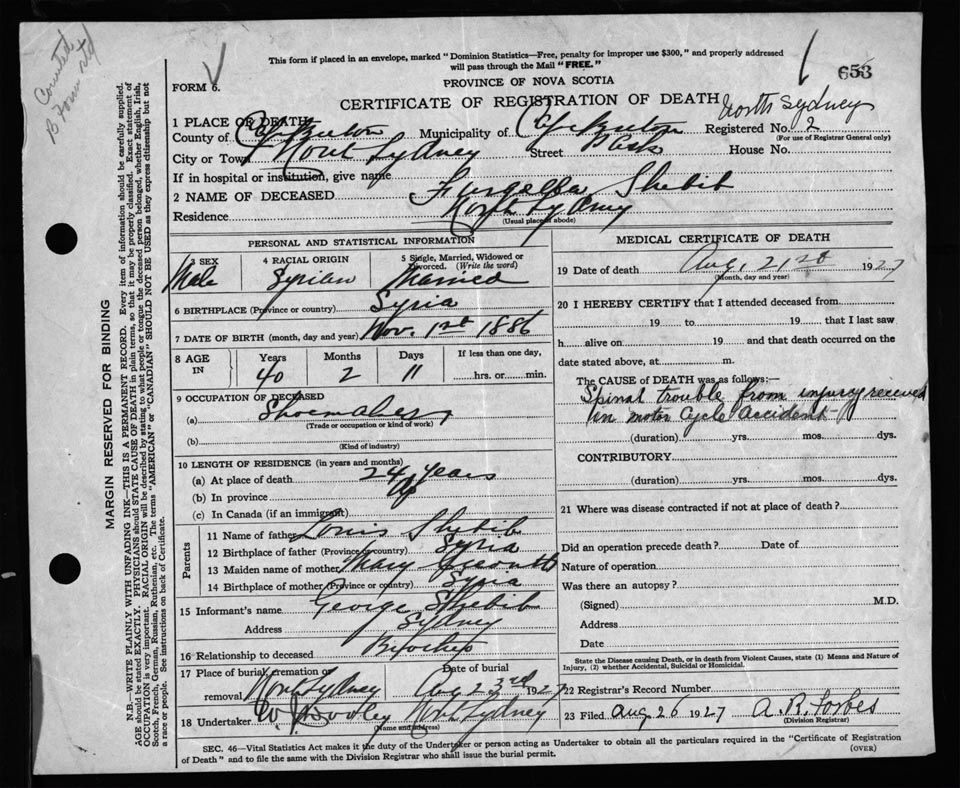 Counted
This form if placed in an envelope, marked "Dominion Statistics—Free, penalty for improper use $300," and properly addressed
will pass through the Mail "FREE."
653
FORM 6.
PROVINCE OF NOVA SCOTIA
CERTIFICATE OF REGISTRATION OF DEATH
North Sydney
1 PLACE OF DEATH:
County of Cape Breton Municipality of Cape Breton Registered No. 2
(For use of Registrar General only)
City or Town North Sydney Street House No.
If in hospital or institution, give name
2 NAME OF DECEASED Shebib
Residence North Sydney
(Usual place of abode)
PERSONAL AND STATISTICAL INFORMATION
3 SEX 4 RACIAL ORIGIN 5 Single, Married, Widowed or Divorced. (Write the word)
Male Syrian Married
6 BIRTHPLACE (Province or country) Syria
7 DATE OF BIRTH (month, day and year) Nov. 1st 1886
8 AGE IN Years Months Days If less than one day,
40 2 11 hrs. or min.
9 OCCUPATION OF DECEASED
(a) Shoemaker
(Trade or occupation or kind of work)
(b)
(Kind of industry)
10 LENGTH OF RESIDENCE (in years and months)
(a) At place of death 24 years
(b) In province
(c) In Canada (if an immigrant)
Parents
11 Name of father Louis Shebib
12 Birthplace of father (Province or country) Syria
13 Maiden name of mother Mary
14 Birthplace of mother (Province or country) Syria
15 Informant's name George Shebib
Address Sydney
16 Relationship to deceased
17 Place of burial, cremation or removal North Sydney Date of burial Aug 23rd 1927
18 Undertaker W. J. Dooley North Sydney
(Name and address)
MEDICAL CERTIFICATE OF DEATH
19 Date of death Aug. 21st 1927
(Month, day and year)
20 I HEREBY CERTIFY that I attended deceased from
19 to 19 that I last saw
h alive on 19 and that death occurred on the
date stated above, at m.
The CAUSE OF DEATH was as follows:—
Spinal trouble from injury received
in motor cycle accident
(duration) yrs. mos. dys.
CONTRIBUTORY
(duration) yrs. mos. dys.
21 Where was disease contracted if not at place of death?
Did an operation precede death? Date of
Nature of operation
Was there an autopsy?
(Signed) M.D.
Address
Date
State the Disease causing Death, or in death from Violent Causes, state (1) Means and Nature of
Injury, (2) whether Accidental, Suicidal or Homicidal.
22 Registrar's Record Number
23 Filed Aug 26 1927 A. R. Forbes
(Division Registrar)
SEC. 46—Vital Statistics Act makes it the duty of the Undertaker or person acting as Undertaker to obtain all the particulars required in the "Certificate of Registration
of Death" and to file the same with the Division Registrar who shall issue the burial permit.
(OVER)
MARGIN RESERVED FOR BINDING
N.B.—WRITE PLAINLY WITH UNFADING INK—THIS IS A PERMANENT RECORD. Every item of information should be carefully supplied.
AGE should be stated EXACTLY. PHYSICIANS should STATE CAUSE OF DEATH in plain terms, so that it may be properly classified. Exact Statement of
OCCUPATION is very important. RACIAL ORIGIN will be described by stating to what people or tongue the deceased person belonged, whether English, Irish,
Scotch, French, German, Russian, Ruthenian, etc. The terms "AMERICAN" or "CANADIAN" SHOULD NOT BE USED as they express citizenship but not
a race or people. See instructions on back of Certificate.